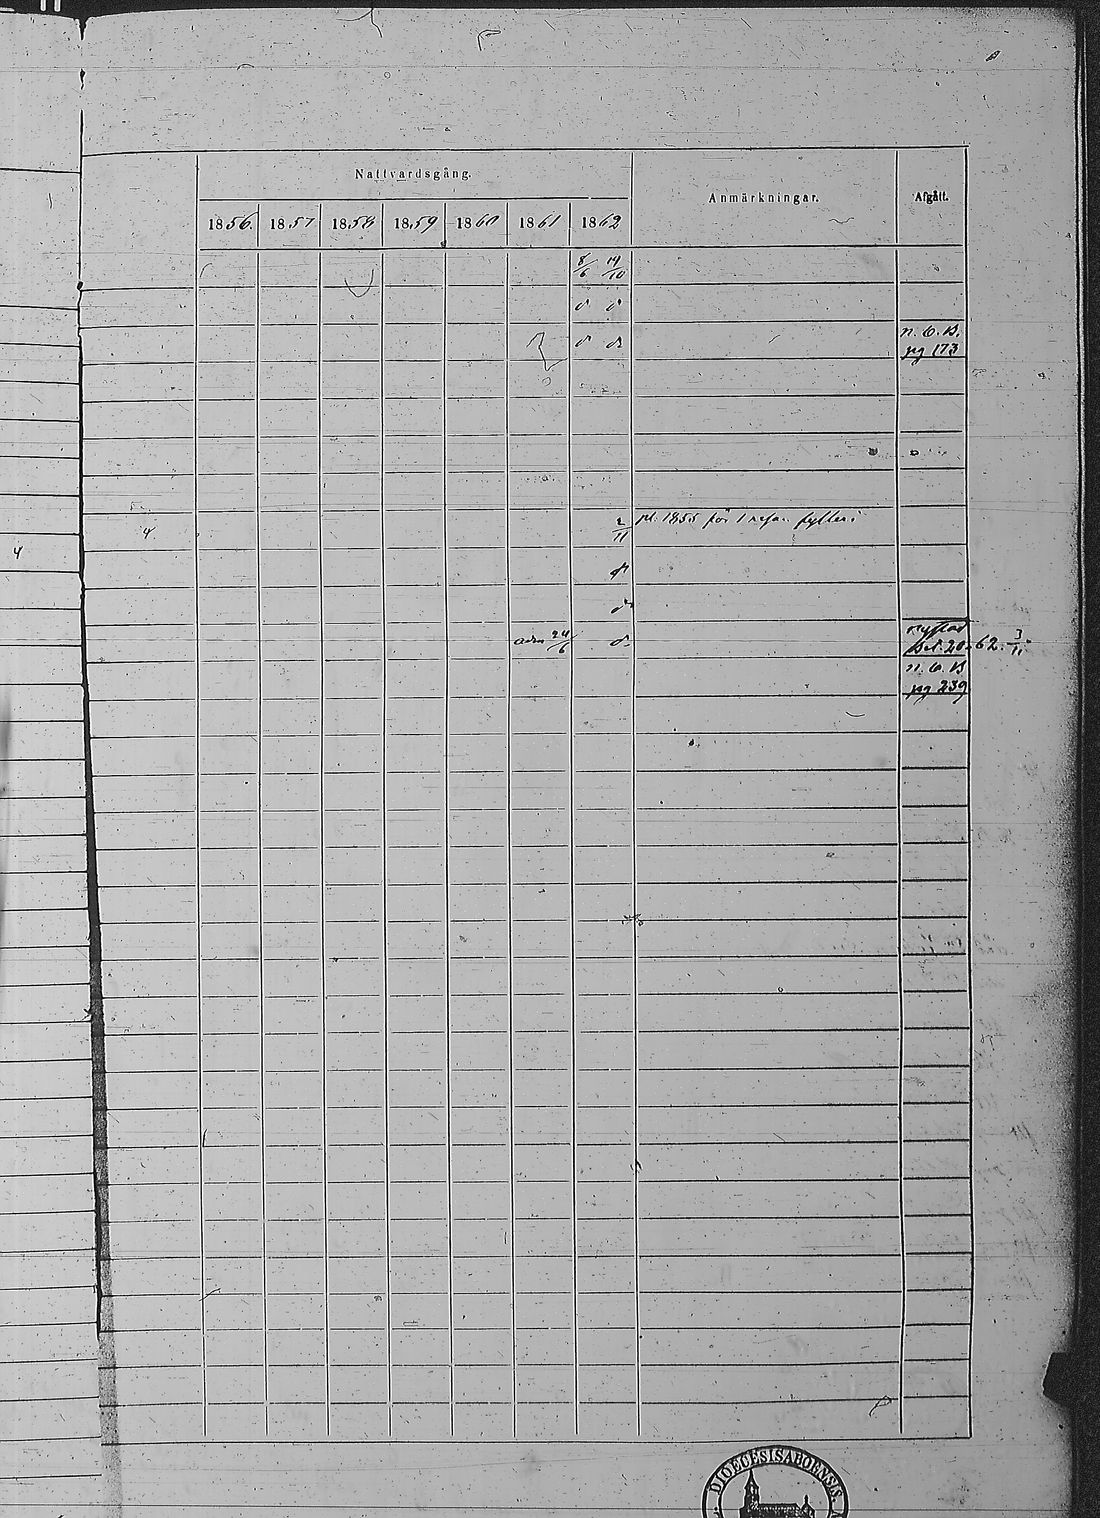 Nattvardsgång.
Anmärkningar.
Afgått.
1856. 1857 1858 1859 1860 1861 1862
8/6 19/10
d d
d d n. C. B.
pg 173
4 2/11 pl. 1855 för 1 resan fylleri
4
d
d
adm 24/6 d
Bet. 20. 62. 3/11
n. C. B
pg 239
DIOECESIS ABOENSIS.